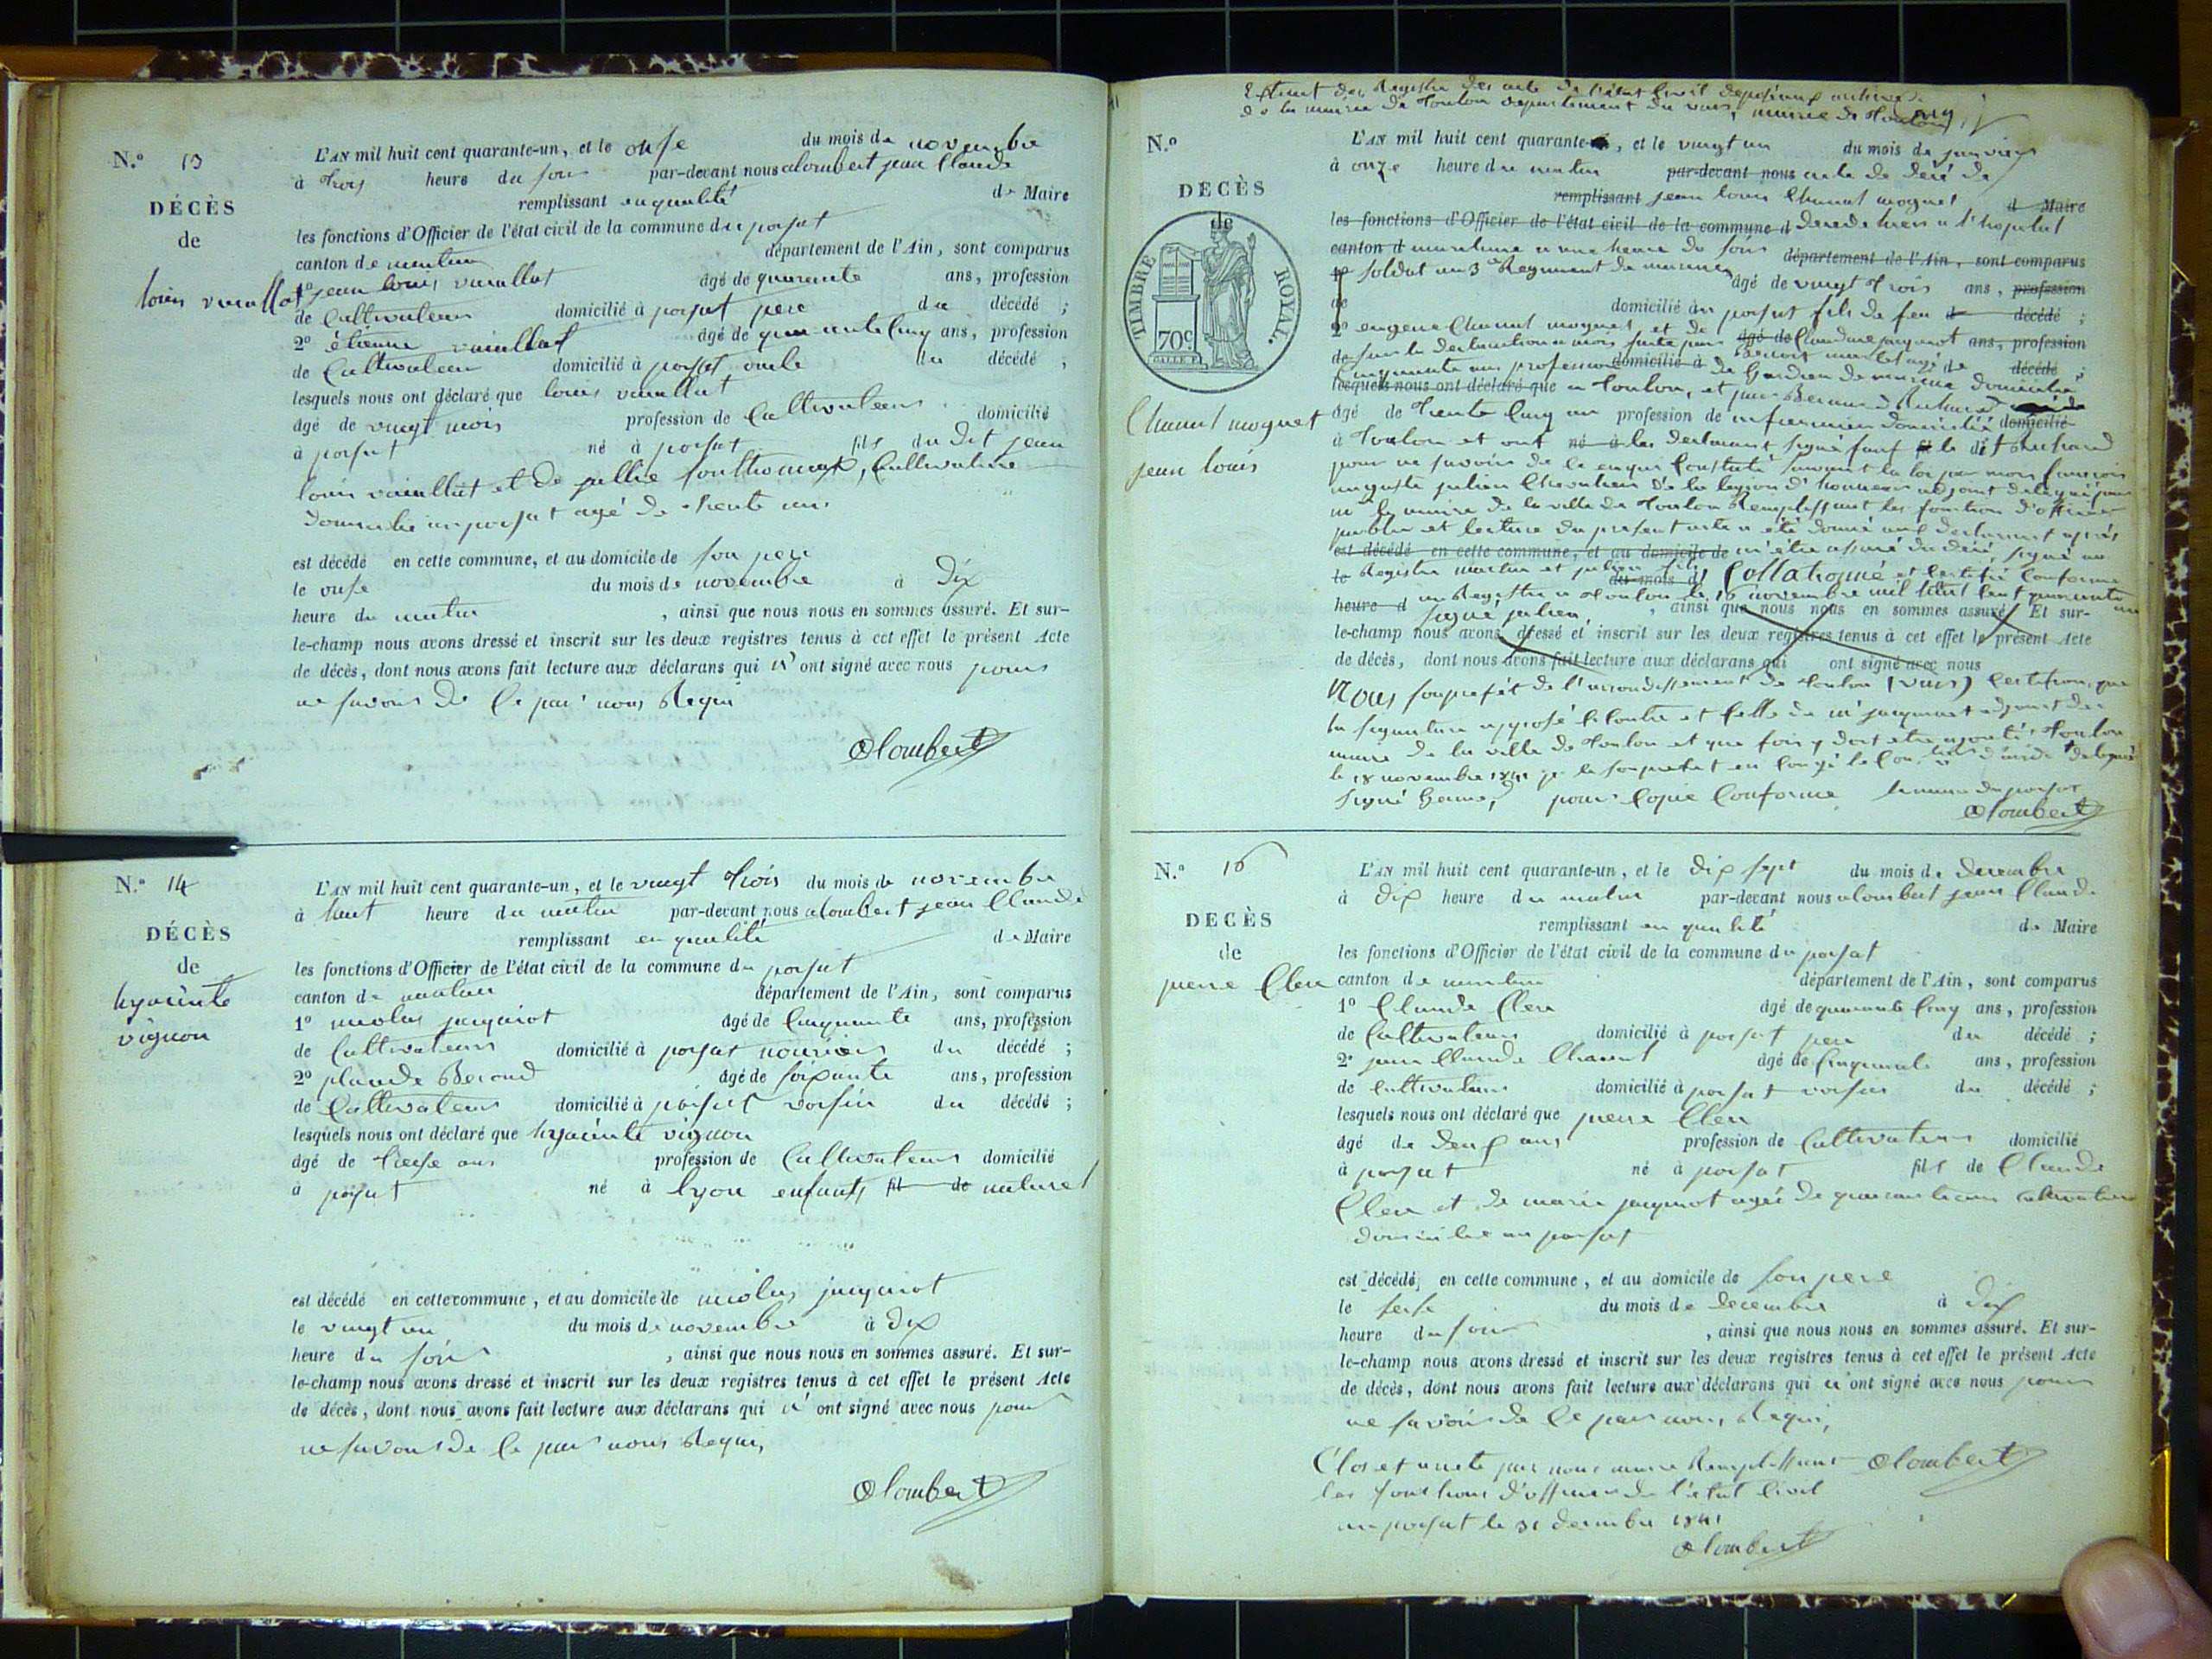 N.° 13
DÉCÈS
de
louis vuaillat
L'AN mil huit cent quarante-un, et le onse du mois de novembre
à trois heure du soir par-devant nous alombert jean Claude
remplissant en qualité de Maire
les fonctions d'Officier de l'état civil de la commune du porsat
canton de département de l'Ain, sont comparus
1° jean louis vuaillat âgé de quarante ans, profession
de Cultivateur domicilié à porsat pere du décédé ;
2° étienne vuaillat âgé de quarante Cinq ans, profession
de Cultivateur domicilié à porsat oncle du décédé ;
lesquels nous ont déclaré que louis vuaillat
âgé de vingt mois profession de Cultivateur domicilié
à porsat né à porsat fils du dit jean
louis vuaillat et de Cultivatrice
domicilié au porsat agé de trente ans
est décédé en cette commune, et au domicile de son pere
le onse du mois de novembre à Dix
heure du matin , ainsi que nous nous en sommes assuré. Et sur-
le-champ nous avons dressé et inscrit sur les deux registres tenus à cet effet le présent Acte
de décès, dont nous avons fait lecture aux déclarans qui n' ont signé avec nous pour
ne savoir de Ce par nous Requi
alombert
N.° 14
DÉCÈS
de
hyacinte
vignon
L'AN mil huit cent quarante-un, et le vingt trois du mois de novembre
à huit heure du matin par-devant nous alombert jean Claude
remplissant en qualité de Maire
les fonctions d'Officier de l'état civil de la commune du porsat
canton de département de l'Ain, sont comparus
1° nicolas jaquinot âgé de Cinquante ans, profession
de Cultivateur domicilié à porsat nouricier du décédé ;
2° plaude Beroud âgé de soixante ans, profession
de Cultivateur domicilié à porsat voisin du décédé ;
lesquels nous ont déclaré que hyacinte vignon
âgé de treise ans profession de Cultivateur domicilié
à porsat né à lyon enfant fil de naturel
est décédé en cette commune, et au domicile de nicolas jaquinot
le vingt un du mois de novembre à dix
heure du soir , ainsi que nous nous en sommes assuré. Et sur-
le-champ nous avons dressé et inscrit sur les deux registres tenus à cet effet le présent Acte
de décès, dont nous avons fait lecture aux déclarans qui n' ont signé avec nous pour
ne savoir de Ce par nous Requi,
alombert
Extrait des Registre des acte de l'état Civil déposé aux archives
de la mairie de Toulon departement du vars, mairie de Toulon
N.°
DECÈS
de
TIMBRE ROYAL.
70c
Chanut moguet
jean louis
L'AN mil huit cent quarante , et le vingt un du mois de janvier
à onze heure du matin par-devant nous acte de décé de
remplissant jean louis Chanut moguet d Maire
les fonctions d'Officier de l'état civil de la commune d décédé hier a l'hopital
canton d maritime a une heure du soir département de l'Ain, sont comparus
1° soldat au 3e Regiment de marine âgé de vingt trois ans, profession
de domicilié au porsat fils de feu d décédé ;
2° eugene Chanut moguet et de âgé de Claudine jaquinot ans, profession
de sur la declaration a nous faite par Benoit martel agé de
Cinquante ans profession domicilié à de Gardien de marine domicilié décédé ;
lesquels nous ont déclaré que a Toulon, et par Bernard Richard
âgé de Trente Cinq an profession de infirmier domicilié domicilié
à Toulon et ont né à les declarant signé sauf le dit Richard
pour ne savoir de Ce enqui Constaté suivant la loi par moi francois
auguste julien Chevalier de la legion d'honneur adjoint delegué par
mr le maire de la ville de Toulon Remplissant les fonction d'officier
public et lecture du present acte a été donné aux declarant après
est décédé en cette commune, et au domicile de m'étre assuré du décé, signé au
le Registre martel et julien du mois d Collationné et Certifié Conforme
heure d au Registre a Toulon le 16 novembre mil huit Cent quarante un
signé julien, , ainsi que nous nous en sommes assuré. Et sur-
le-champ nous avons dressé et inscrit sur les deux registres tenus à cet effet le présent Acte
de décès, dont nous avons fait lecture aux déclarans qui ont signé avec nous
Nous souprefét de l'arrondissement de Toulon (vars) Certifion que
la signature apposé Ci Contre est Celle de mr adjoint de
maire de la ville de Toulon et que foi y doit etre ajouté Toulon
le 18 novembre 1841 pr le souprefet en Congé le
signé pour Copie Conforme le maire du porsat
alombert
N.° 16
DECÈS
de
pierre Clerc
L'AN mil huit cent quarante-un, et le dix sept du mois de decembre
à Dix heure du matin par-devant nous alombert jean Claude
remplissant en qualité de Maire
les fonctions d'Officier de l'état civil de la commune du porsat
canton de département de l'Ain, sont comparus
1° Claude Clerc âgé de quarante Cinq ans, profession
de Cultivateur domicilié à porsat pere du décédé ;
2° jean Claude Chanut âgé de Cinquante ans, profession
de Cultivateur domicilié à porsat voisin du décédé ;
lesquels nous ont déclaré que pierre Clerc
âgé de deux ans profession de Cultivateur domicilié
à porsat né à porsat fils de Claude
Clerc et de marie jaquinot agée de quarante ans Cultivatrice
domicilié au porsat
est décédé, en cette commune, et au domicile de son pere
le seise du mois de decembre à dix
heure du soir , ainsi que nous nous en sommes assuré. Et sur-
le-champ nous avons dressé et inscrit sur les deux registres tenus à cet effet le présent Acte
de décès, dont nous avons fait lecture aux déclarans qui n' ont signé avec nous pour
ne savoir de Ce par nous Requi,
Clos et arreté par nous maire Remplissant alombert
les fonctions d'officier de l'état Civil
au porsat le 31 decembre 1841
alombert